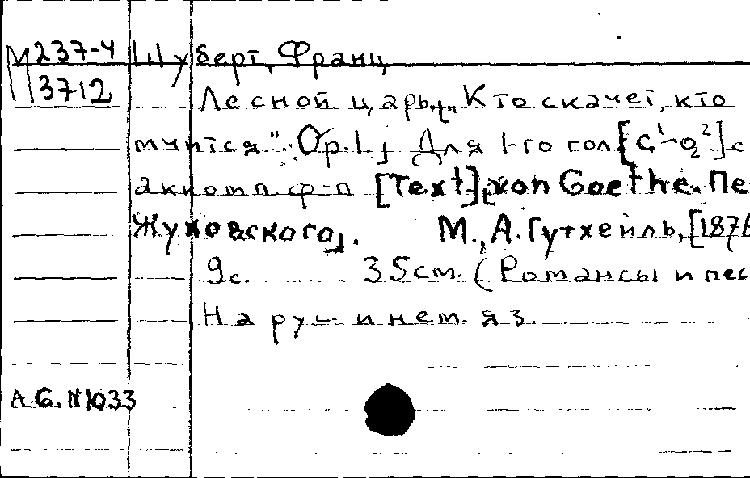 М237-4 Шуберт, Франц
3712 Лесной царь „Кто скачет, кто
мчится". Op.1. Для 1-го гол[c¹-g²] с
аккомп. ф-п [Text] von Goethe. Пе
Жуковского. М., А. Гутхейль, [1876
9с. 35см. (Романсы и пес
На рус. и нем. яз.
A.G.N1033